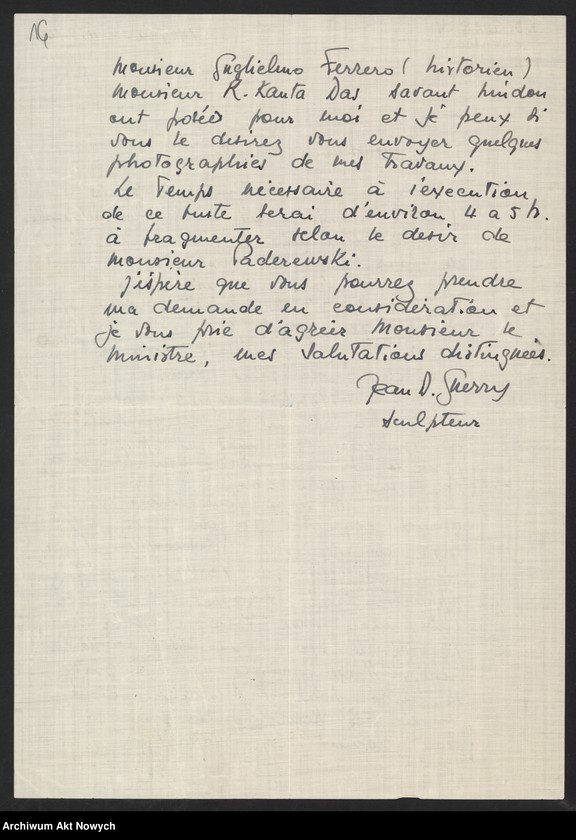 16
Monsieur Guglielmo Ferrero (historien)
Monsieur R. Kanta Das savant hindou
ont posées pour moi et je peux si
vous le desirez vous envoyer quelques
photographies de mes travaux.
Le Temps nécessaire à l'execution
de ce buste serai d'environ 4 a 5 h.
à fragmenter selon le desir de
monsieur Paderewski.
J'éspère que vous pourrez prendre
ma demande en considération et
je vous prie d'agréer Monsieur le
Ministre, mes salutations distinguées.
Jean D. Guerry
sculpteur
Archiwum Akt Nowych